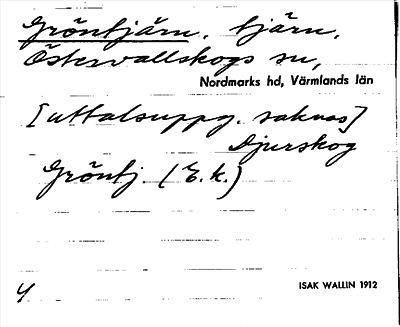 Gröntjärn, tjärn,
Östervallskogs sn,
Nordmarks hd, Värmlands län
[uttalsuppg. saknas]
Djurskog
Gröntj. (E.k.)
4
ISAK WALLIN 1912